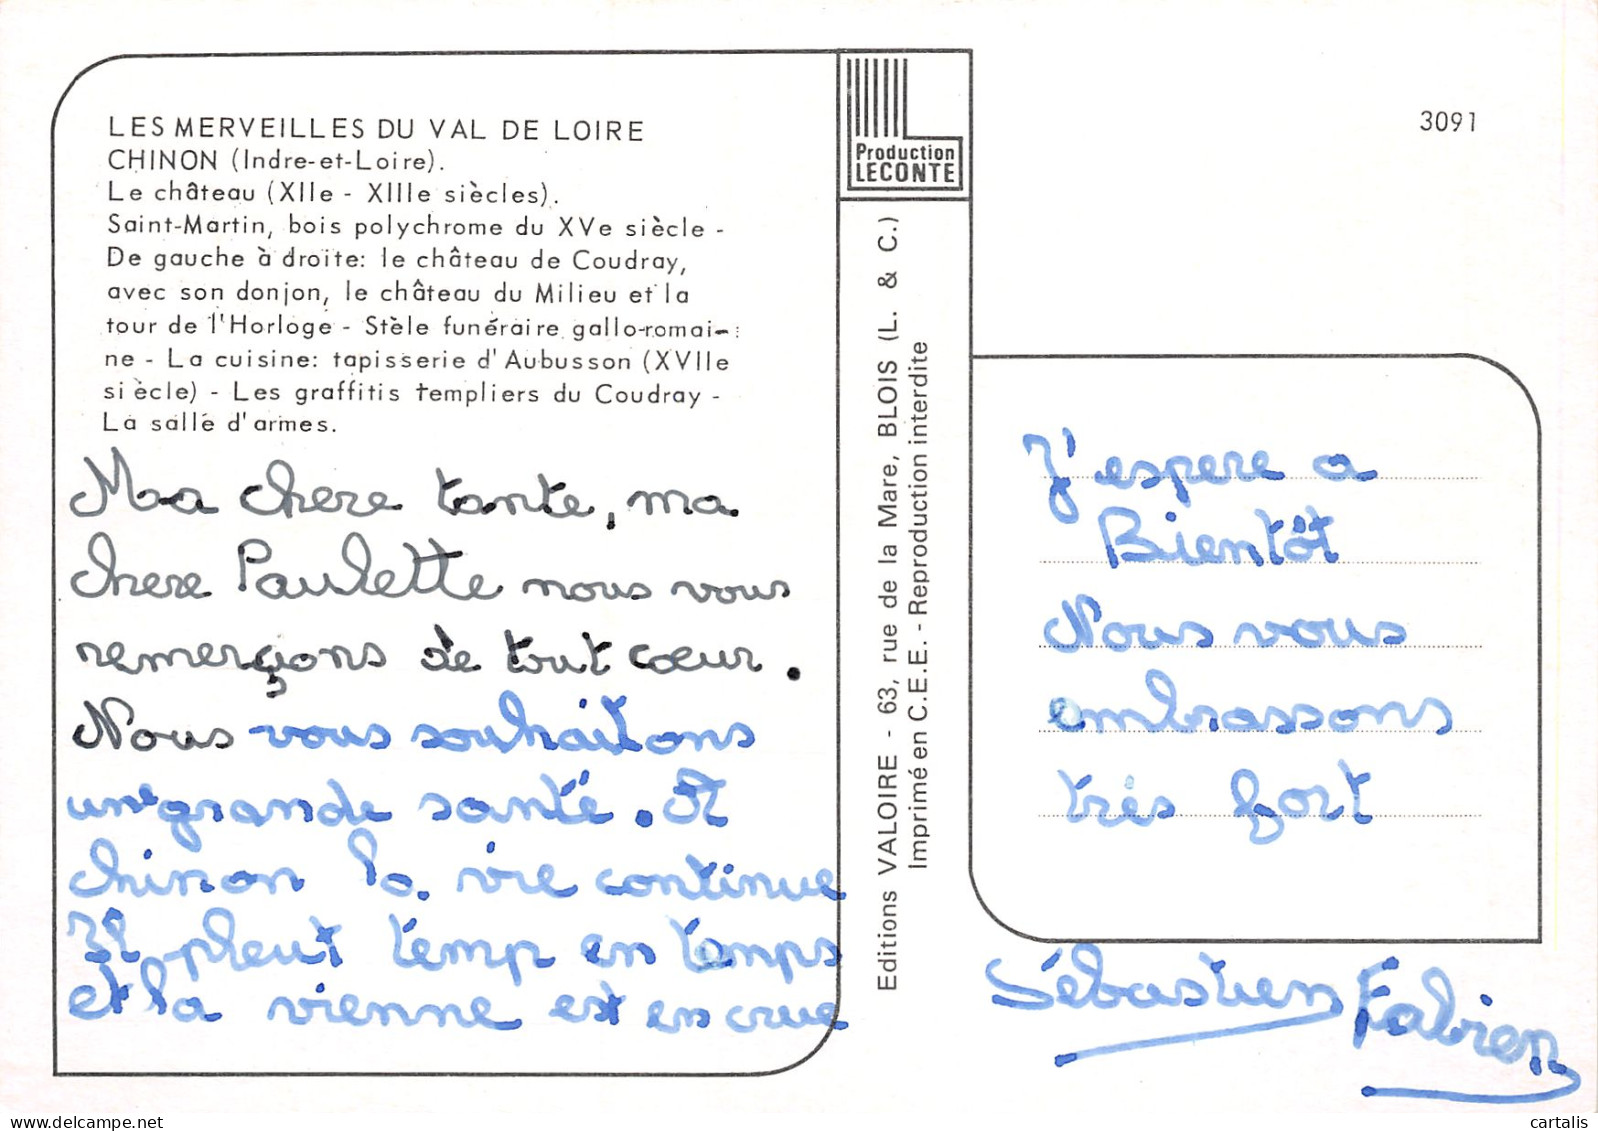 LES MERVEILLES DU VAL DE LOIRE
CHINON (Indre-et-Loire).
Le château (XIIe - XIIIe siècles).
Saint-Martin, bois polychrome du XVe siècle -
De gauche à droite: le château de Coudray,
avec son donjon, le château du Milieu et la
tour de l'Horloge - Stèle funéraire gallo-romai-
ne - La cuisine: tapisserie d'Aubusson (XVIIe
siècle) - Les graffitis templiers du Coudray -
La salle d'armes.
Ma chere tante, ma
chere Paulette nous vous
remerçions de tout cœur.
Nous vous souhaitons
une grande santé. A
chinon la vie continue
Il pleut temp en temps
et la vienne est en crue
Production
LECONTE
Editions VALOIRE - 63, rue de la Mare, BLOIS (L. & C.)
Imprimé en C.E.E. - Reproduction interdite
3091
J'espere a
Bientôt
Nous vous
embrassons
très fort
Sébastien Fabien
cartalis